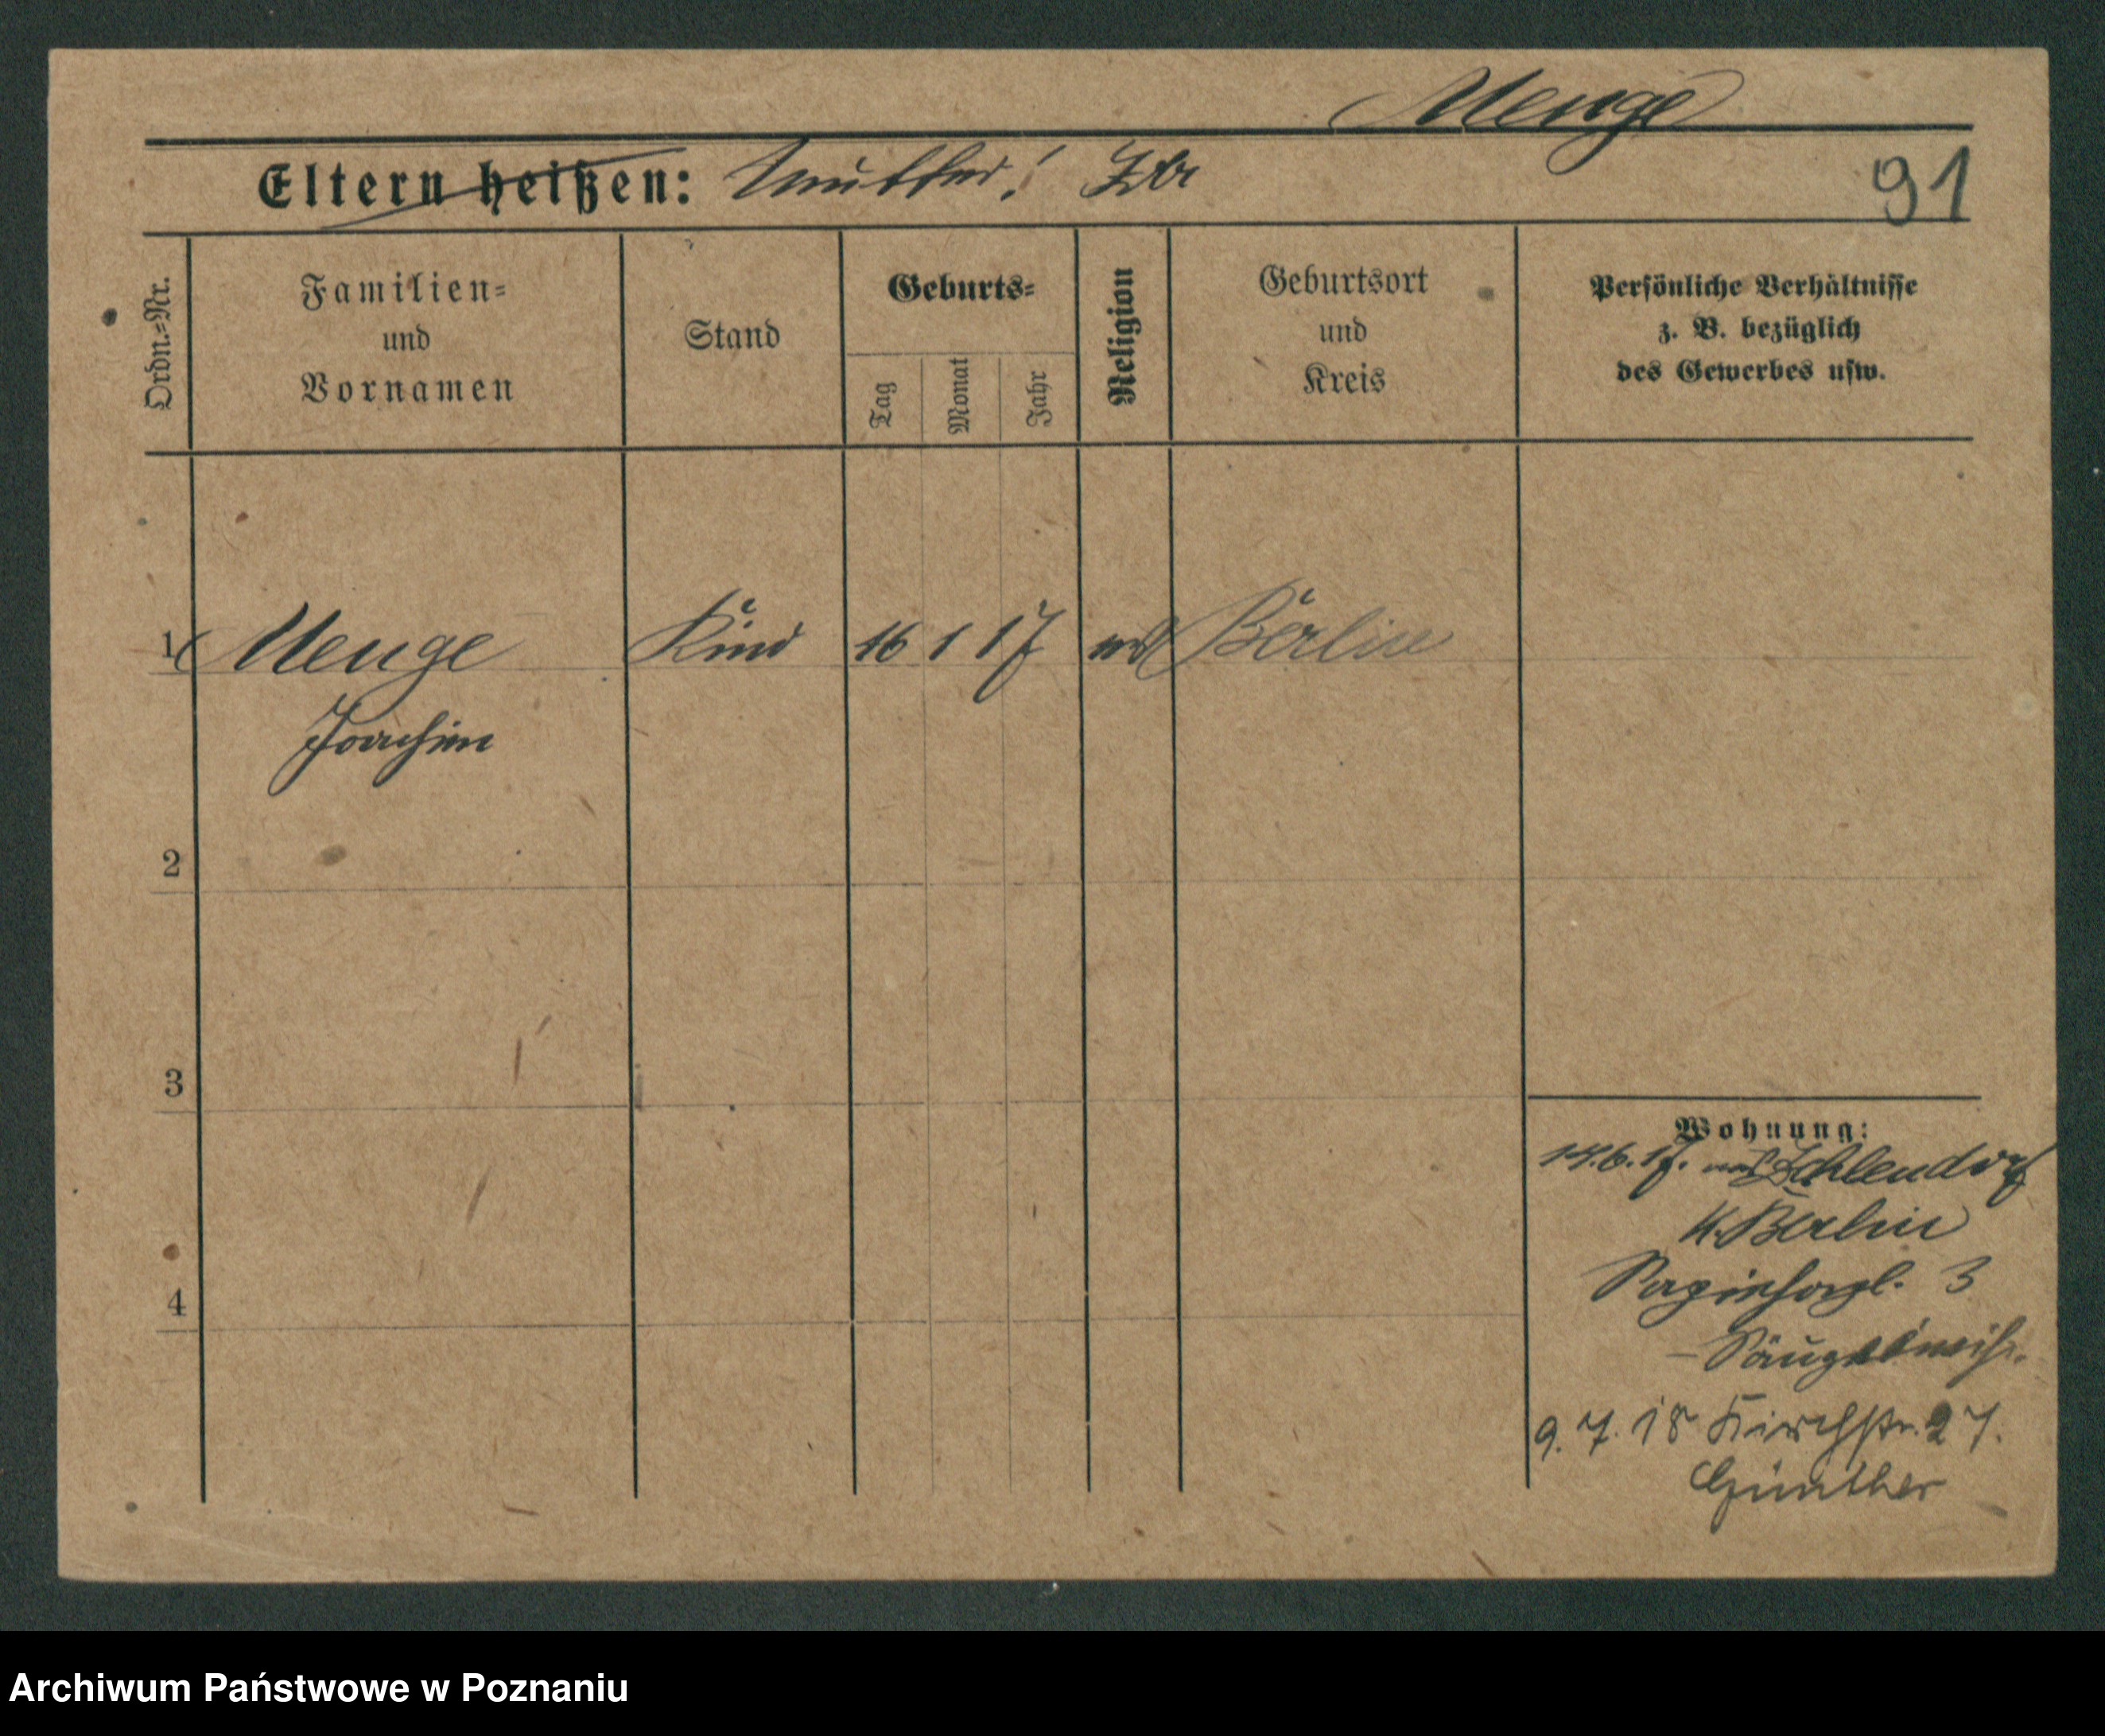 Menge
Eltern heißen: Mutter! Ida
91
Ordn.-Nr.
Familien-
und
Vornamen
Stand
Geburts-
Tag
Monat
Jahr
Religion
Geburtsort
und
Kreis
Persönliche Verhältnisse
z. B. bezüglich
des Gewerbes usw.
1 Menge Kind 16 1 17 Berlin
Joachim
2
3
4
Wohnung:
14.6.17. Zehlendorf
Berlin
3
9.7.18 Kirchstr. 27.
Günther
Archiwum Państwowe w Poznaniu